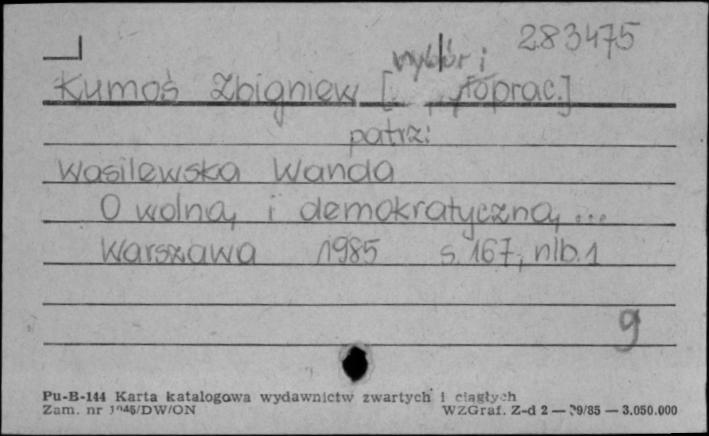 283475
wybór i
Kumoś Zbigniew [ oprac.]
patrz:
Wasilewska Wanda
O wolną i demokratyczną ...
Warszawa 1985 s. 167, nlb. 1
g
Pu-B-144 Karta katalogowa wydawnictw zwartych i ciągłych
Zam. nr /DW/ON WZGraf. Z-d 2 — 9/85 — 3.050.000